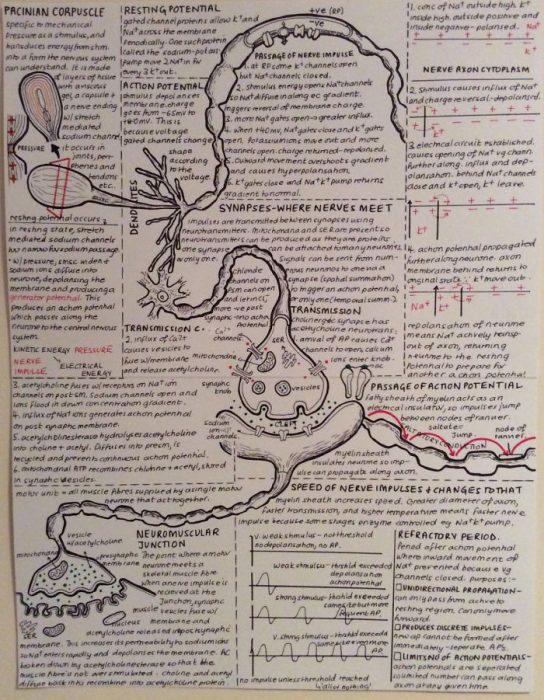 PACINIAN CORPUSCLE
Specific to mechanical
Pressure as a stimulus, and
transduces energy from stim.
into a form the nervous system
can understand. It is made
layers of tissue
with a viscous
gel, a capsule
a nerve ending
w/ stretch
mediated
sodium channel.
it occurs in
joints, peri-
pheries and
tendons
etc.
PRESSURE
resting potential occurs
in resting state, stretch
mediated sodium channels
too narrow for sodium passage.
w/ pressure,
sodium ions diffuse into
neurone, depolarising the
membrane and producing a
generator potential. This
produces an action potential
which passes along the
neurone to the central nervous
system.
KINETIC ENERGY PRESSURE
NERVE IMPULSE ELECTRICAL ENERGY
RESTING POTENTIAL
gated channel proteins allow K+ and
Na+ across the membrane
called the sodium-potass.
pump move 2 Na+ in for
every 3 K+ out.
ACTION POTENTIAL
stimulus depolarises
membrane. charge
goes from -65mv to
+40mv. This is
because voltage
gated channels change
shape
according
to the
voltage.
DENDRITES
+ve (RP)
-ve
PASSAGE OF NERVE IMPULSE
1. at RP some K+ channels open
but Na+ channels closed.
2. stimulus energy opens Na+ channels
so Na+ diffuse in along ec gradient.
triggers reversal of membrane charge.
3. more Na+ channels open → greater influx.
4. when +40mv, Na+ gates close and K+ gates
open. Potassium ions move out and more
channels open. charge returned - repolarised.
5. Outward movement overshoots gradient
and causes hyperpolarisation.
6. K+ gates close and Na+ K+ pump returns
gradient to normal.
1. conc of Na+ outside high, K+
inside high. outside positive and
inside negative - polarised.
Na+
K+
NERVE AXON CYTOPLASM
2. Stimulus causes influx of Na+
and charge reversal - depolarised.
3. electrical circuit established.
causes opening of Na+ vg channels
further along. influx and dep-
olarisation. behind Na+ channels
close and K+ open, K+ leave.
4. action potential propagated
further along neurone. axon
membrane behind returns to
original state. K+ move out
Na+
K+
repolarisation of neurone
means Na+ actively transp-
out of axon, returning
neurone to the resting
potential to prepare for
another action potential
SYNAPSES - WHERE NERVES MEET
impulses are transmitted between synapses using
neurotransmitters. Mitochondria and SER are present so
neurotransmitters can be produced as they are proteins
one synapse can be attached to many neurones
or only one.
Signals can be sent from num-
erous neurones to one via a
synapse (spatial summation)
to trigger an action potential,
or only one (temporal summ-).
chloride
channels
can open
and let in Cl-
more -ve post
synaptic - no action
potential
TRANSMISSION
cholinergic synapse has
acetylcholine neurotrans:
1. arrival of AP causes Ca2+
channels to open, calcium
ions enter knob
TRANSMISSION C.
2. influx of Ca2+
causes vesicles to
fuse w/ membrane
and release acetylcholine.
Ca2+ channels
SER
mitochondria
synaptic knob
vesicles
CLEFT
sodium ion channels
3. acetylcholine fuses w/ receptors on Na+ ion
channels on post syn. Sodium channels open and
ions flood in down concentration gradient.
4. influx of Na+ ions generates action potential
on post synaptic membrane.
5. acetylcholinesterase hydrolyses acetylcholine
into choline + acetyl. Diffuses into presyn, is
recycled and prevents continuous action potential.
6. mitochondrial ATP recombines choline + acetyl, stored
in synaptic vesicles.
PASSAGE OF ACTION POTENTIAL
Fatty sheath of myelin acts as an
electrical insulator, so impulses jump
between nodes of ranvier.
saltator
jump
node of ranvier
SALTATORY CONDUCTION
myelin sheath
insulates neurone so imp-
ulse can propagate along axon.
SPEED OF NERVE IMPULSES + CHANGES TO THAT
myelin sheath increases speed. Greater diameter of axon,
faster transmission, and higher temperature means faster nerve
impulse because some stages enzyme controlled eg Na+ K+ pump.
motor unit = all muscle fibres supplied by a single motor
neurone that act together.
NEUROMUSCULAR
JUNCTION
The point where a motor
neurone meets a
skeletal muscle fibre.
when one impulse is
recieved at the
Junction, synaptic
vesicles fuse w/
membrane and
acetylcholine released into post synaptic
membrane. This increases its permeability to sodium ions
so Na+ enters rapidly and depolarises the membrane. AC
broken down by acetylcholinesterase so that the
muscle fibre is not over stimulated. choline and acetyl
diffuse back into neurone into acetylcholine protein.
vesicle w/ acetylcholine
mitochondria
presynaptic membrane
muscle vesicles
nucleus
SER
v. weak stimulus - not threshold
so no depolarisation, no AP.
weak stimulus - threshold exceeded
depolarisation
action potential
strong stimulus - threshold exceeded
same size but more
frequent AP.
v. strong stimulus - threshold exceeded
AP.
no impulse unless threshold reached
(all or nothing)
REFRACTORY PERIOD.
Period after action potential
where inward movement of
Na+ prevented because vg
channels closed. purposes:-
□ UNIDIRECTIONAL PROPAGATION-
can only pass from active to
resting region. Can only move
forward.
□ PRODUCES DISCRETE IMPULSES-
new AP cannot be formed after
immediately - seperate APs.
□ LIMITS NO OF ACTION POTENTIALS-
action potentials are seperated
so limited number can pass along
an axon at any given time.